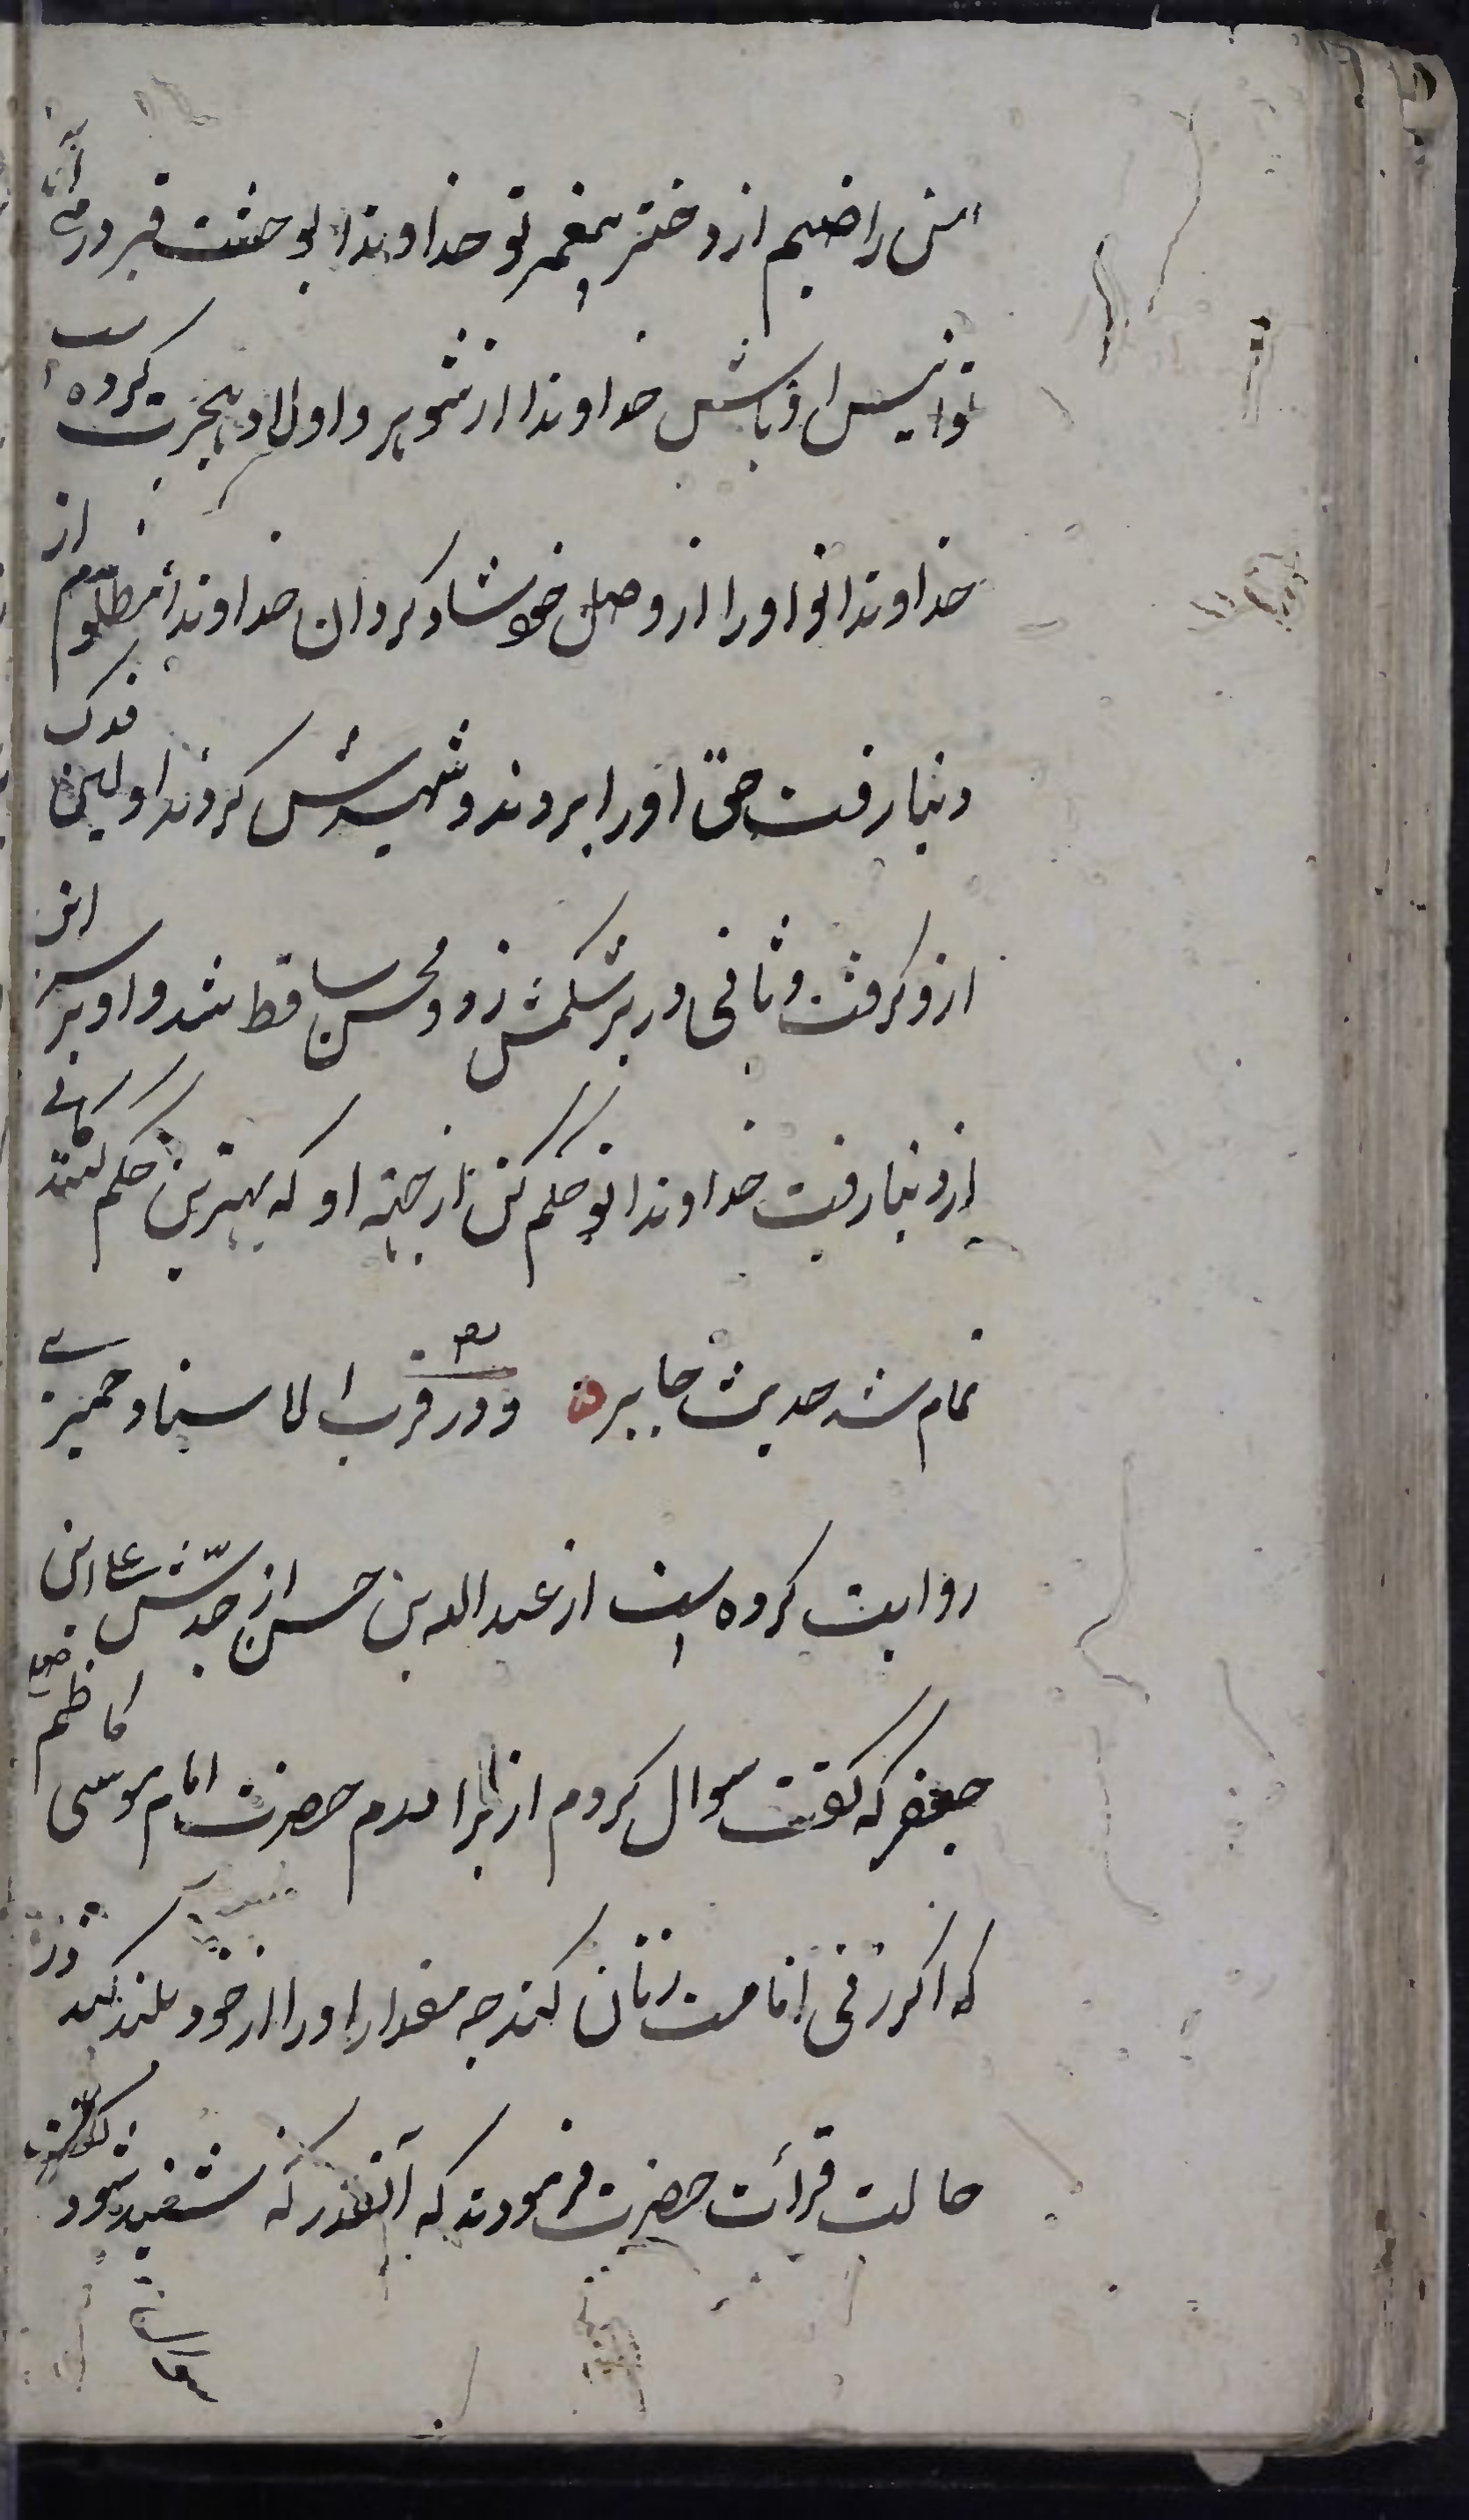 من راضیم از دختر پیغمبر تو خداوندا بوحشت قبر در مآید
تو انیس او باش خداوندا از شوهر و اولاد هجرت کرده است
خداوندا تو او را از وصل خود شاد گردان خداوندا مظلوم از
دنیا رفت حق او را بردند و شهیدش کردند اولین فدک
ازو گرفت و ثانی در بر شکمش زد و محسن ساقط شد و او نیز
از دنیا رفت خداوندا تو حکم کن از جهة او که بهترین حکم کنندگانی
تمام شد حدیث جابر و در قرب الاسناد حمیری
روایت کرده است از عبدالله بن حسن از جدش علی ابن
جعفر که گفت سوال کردم از برادرم حضرت امام موسی کاظم
که اگر زنی امامت زنان کند چه مقدار او را از خود بلند کند در
حالت قرائت حضرت فرمودند که آنقدر که شنیده شود